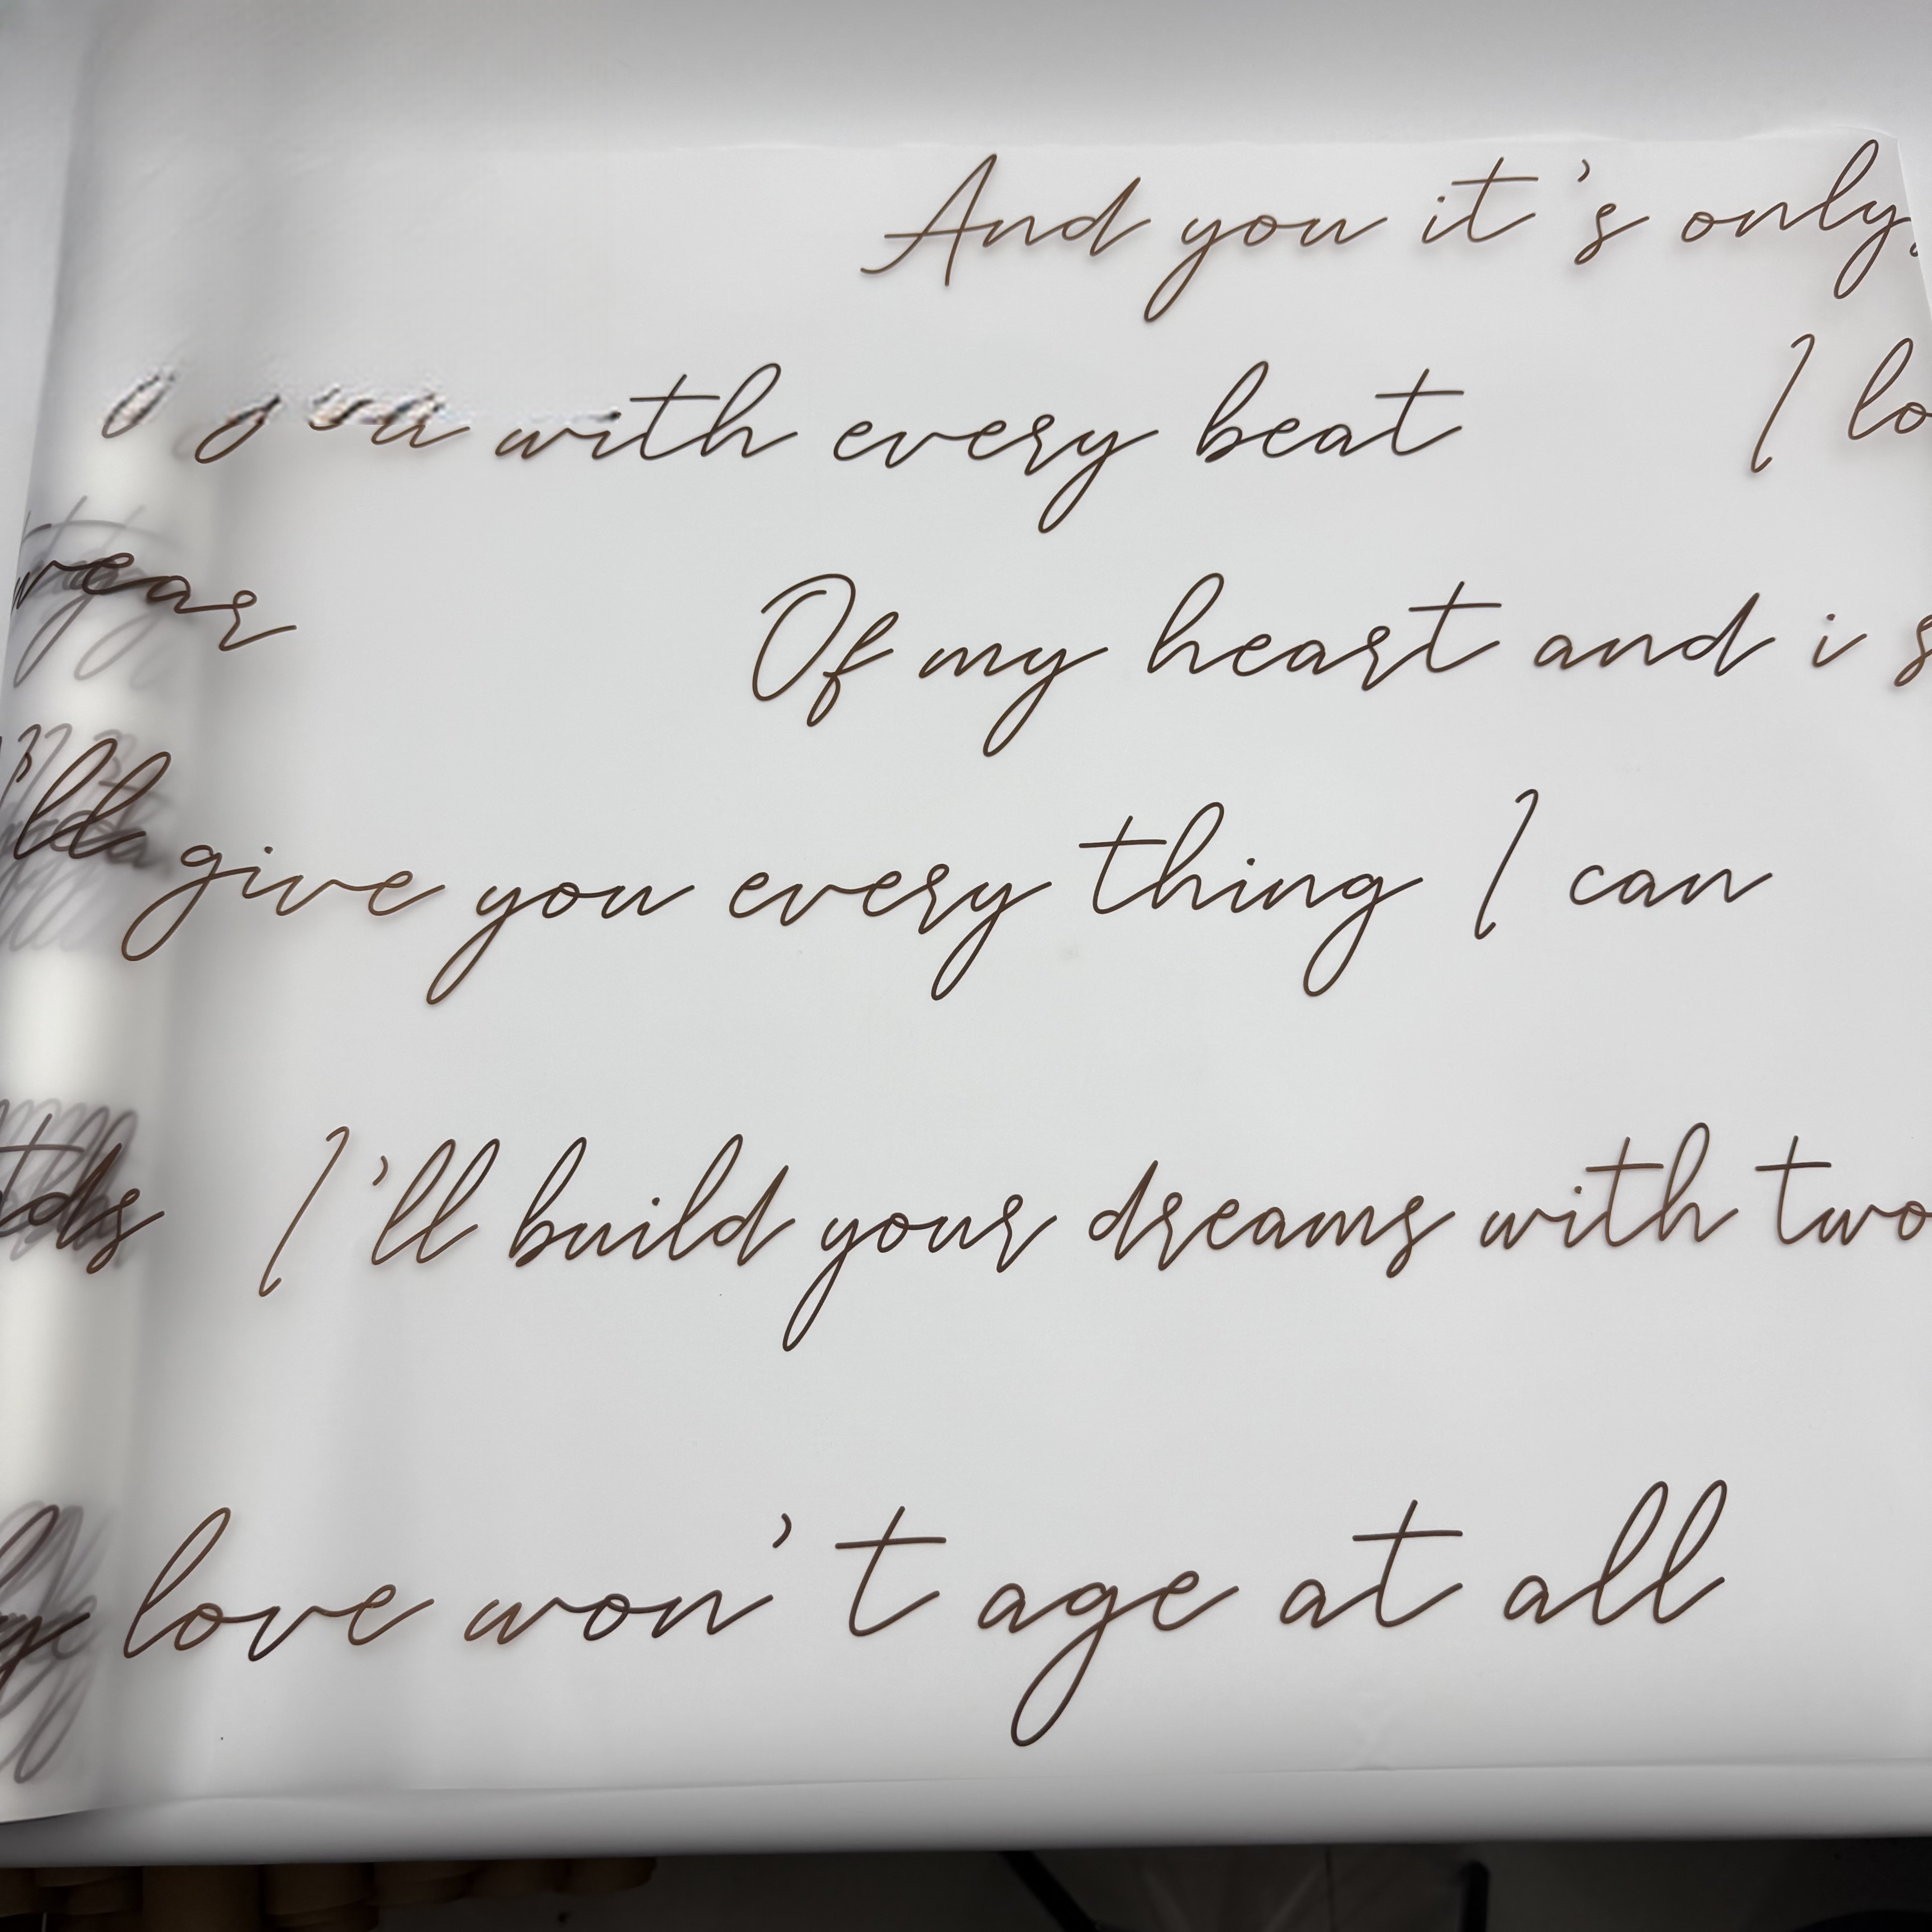 And you it's only
you with every beat I lo
wear Of my heart and i s
'll give you every thing I can
ds I'll build your dreams with two
love won't age at all